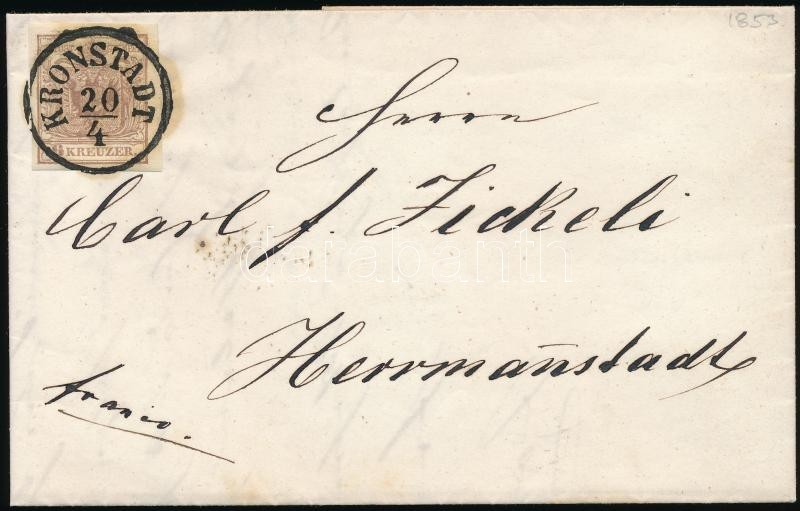 1853
KRONSTADT
20
4
6 KREUZER
Herrn
Carl f. Zickeli
Herrman̄stadt
franco.
darabanth